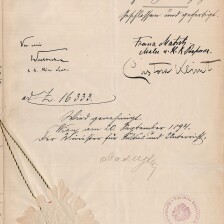 geschlossen und gefertigt.
Vor mir
Franz Matsch
Maler u. K.K. Professor.
Gustav Klimt
ad Z 16.333.
Wird genehmigt.
Wien am 20 September 1894.
Der Minister für Kultus und Unterricht:
Madeyski